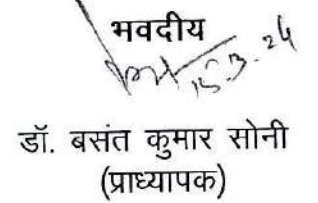 भवदीय
15.3.24
डॉ. बसंत कुमार सोनी
(प्राध्यापक)